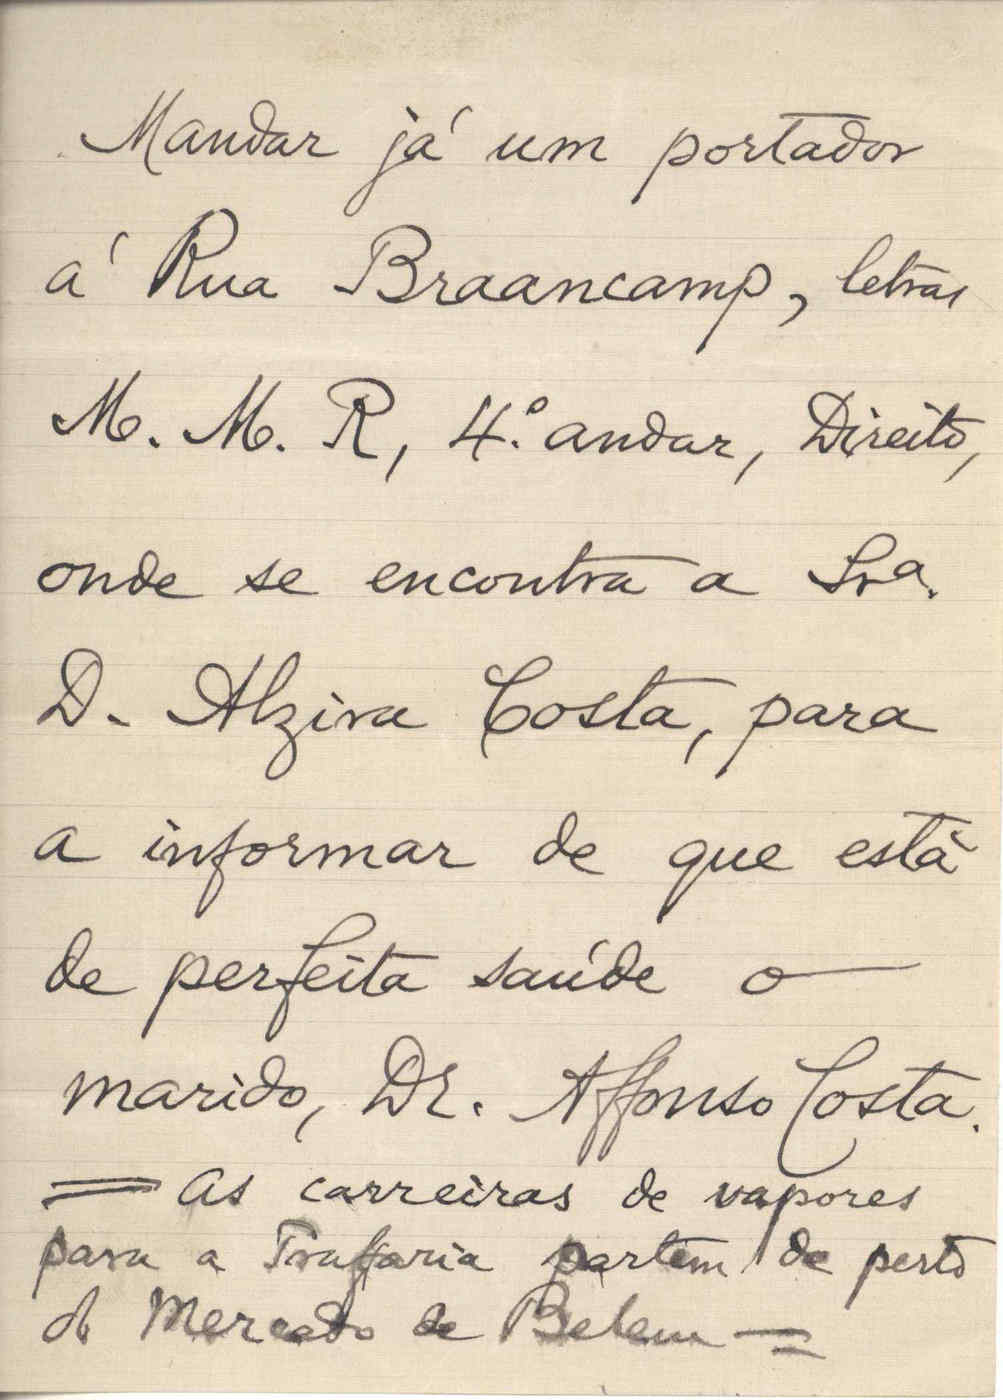 Mandar já um portador
á Rua Braancamp, letras
M. M. R, 4.º andar, Direito,
onde se encontra a Srª.
D. Alzira Costa, para
a informar de que está
de perfeita saúde o
marido, Dr. Affonso Costa.
= As carreiras de vapores
para a Traffaria partem de perto
do Mercado de Belem =